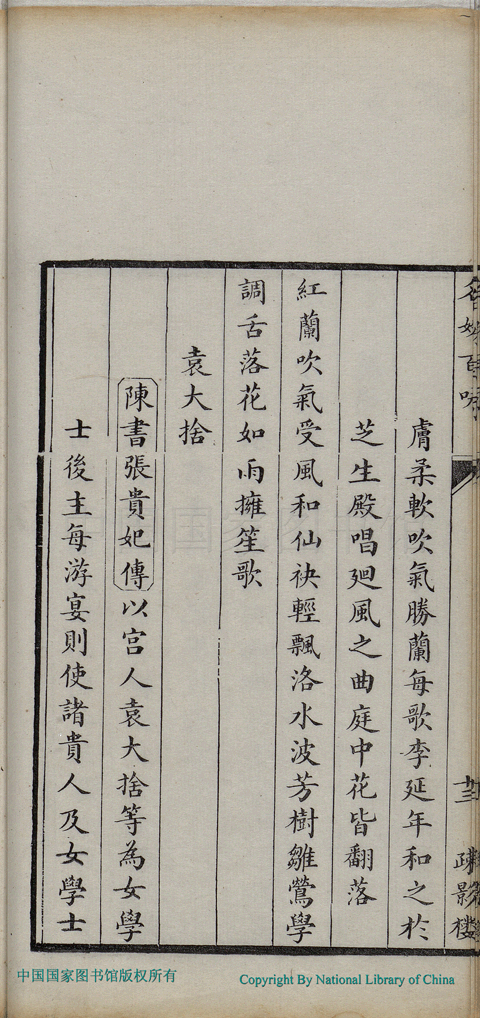 膚柔軟吹氣勝蘭每歌李延年和之於
芝生殿唱廻風之曲庭中花皆翻落
紅蘭吹氣受風和仙袂輕飄洛水波芳樹雛鶯學
調舌落花如雨擁笙歌
袁大捨
陳書張貴妃傳以宮人袁大捨等為女學
士後主每游宴則使諸貴人及女學士
十三
疏影樓
中国国家图书馆版权所有
Copyright By National Library of China